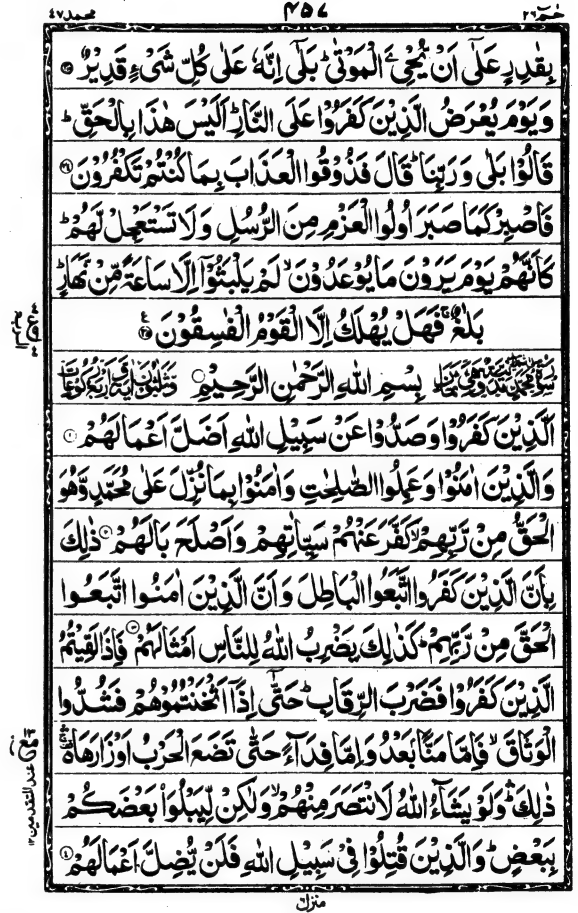 حٰمٓ ٢٦
٤٥٧
محمد ٤٧
بِقٰدِرٍ عَلٰۤى اَنْ يُّحْيِ ىَٕ الْمَوْتٰى ؕ بَلٰۤى اِنَّهٗ عَلٰى كُلِّ شَىْءٍ قَدِيْرٌ
وَيَوْمَ يُعْرَضُ الَّذِيْنَ كَفَرُوْا عَلَى النَّارِ ؕ اَلَيْسَ هٰذَا بِالْحَقِّ ؕ
قَالُوْا بَلٰى وَرَبِّنَا ؕ قَالَ فَذُوْقُوا الْعَذَابَ بِمَا كُنْتُمْ تَكْفُرُوْنَ
فَاصْبِرْ كَمَا صَبَرَ اُولُوا الْعَزْمِ مِنَ الرُّسُلِ وَلَا تَسْتَعْجِلْ لَّهُمْ ؕ
كَاَنَّهُمْ يَوْمَ يَرَوْنَ مَا يُوْعَدُوْنَ ۙ لَمْ يَلْبَثُوْۤا اِلَّا سَاعَةً مِّنْ نَّهَارٍ ؕ
بَلٰغٌ ۚ فَهَلْ يُهْلَكُ اِلَّا الْقَوْمُ الْفٰسِقُوْنَ
بِسْمِ اللّٰهِ الرَّحْمٰنِ الرَّحِيْمِ
اَلَّذِيْنَ كَفَرُوْا وَصَدُّوْا عَنْ سَبِيْلِ اللّٰهِ اَضَلَّ اَعْمَالَهُمْ ١
وَالَّذِيْنَ اٰمَنُوْا وَعَمِلُوا الصّٰلِحٰتِ وَاٰمَنُوْا بِمَا نُزِّلَ عَلٰى مُحَمَّدٍ وَّهُوَ
الْحَقُّ مِنْ رَّبِّهِمْ ۙ كَفَّرَ عَنْهُمْ سَيِّاٰتِهِمْ وَاَصْلَحَ بَالَهُمْ ٢ ذٰلِكَ
بِاَنَّ الَّذِيْنَ كَفَرُوا اتَّبَعُوا الْبَاطِلَ وَاَنَّ الَّذِيْنَ اٰمَنُوا اتَّبَعُوا
الْحَقَّ مِنْ رَّبِّهِمْ ؕ كَذٰلِكَ يَضْرِبُ اللّٰهُ لِلنَّاسِ اَمْثَالَهُمْ ٣ فَاِذَا لَقِيْتُمُ
الَّذِيْنَ كَفَرُوْا فَضَرْبَ الرِّقَابِ ؕ حَتّٰۤى اِذَاۤ اَثْخَنْتُمُوْهُمْ فَشُدُّوا
الْوَثَاقَ ۙ فَاِمَّا مَنًّۢا بَعْدُ وَاِمَّا فِدَآءً حَتّٰى تَضَعَ الْحَرْبُ اَوْزَارَهَا
ذٰلِكَ ؕ وَلَوْ يَشَآءُ اللّٰهُ لَانْتَصَرَ مِنْهُمْ ۙ وَلٰكِنْ لِّيَبْلُوَا۟ بَعْضَكُمْ
بِبَعْضٍ ؕ وَالَّذِيْنَ قُتِلُوْا فِىْ سَبِيْلِ اللّٰهِ فَلَنْ يُّضِلَّ اَعْمَالَهُمْ ٤
منزل